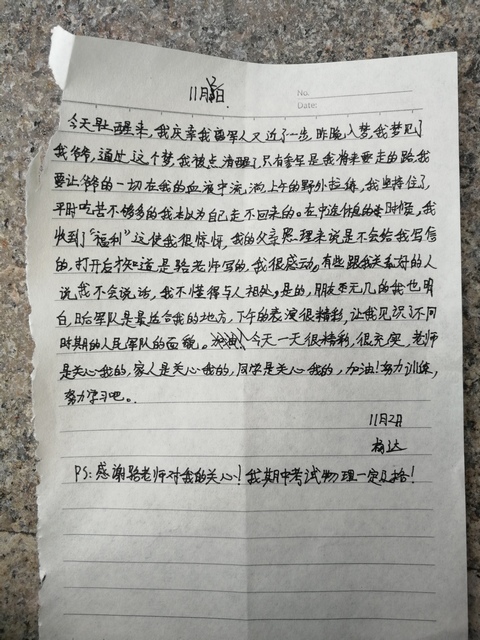 11月2日
No.
Date:
今天早上醒来,我庆幸我离军人又近了一步,昨晚入梦我梦见了
我爷爷,通过这个梦我被点清醒了,只有参军是我将来要走的路,我
要让爷爷的一切在我的血液中流淌,上午的野外拉练,我坚持住了,
平时吃苦不够多的我本以为自己走不回来的。在中途休息的时候,我
收到了“福利”这使我很惊讶,我的父亲照理来说是不会给我写信
的,打开后才知道是骆老师写的,我很感动,有些跟我关系好的人
说我不会说话,我不懂得与人相处,是的,朋友无几的我也明
白,日后军队是最适合我的地方,下午的表演很精彩,让我见识了不同
时期的人民军队的面貌。今天一天很精彩,很充实,老师
是关心我的,家人是关心我的,同学是关心我的,加油!努力训练,
努力学习吧。
11月2日
达
PS:感谢骆老师对我的关心!我期中考试物理一定及格!